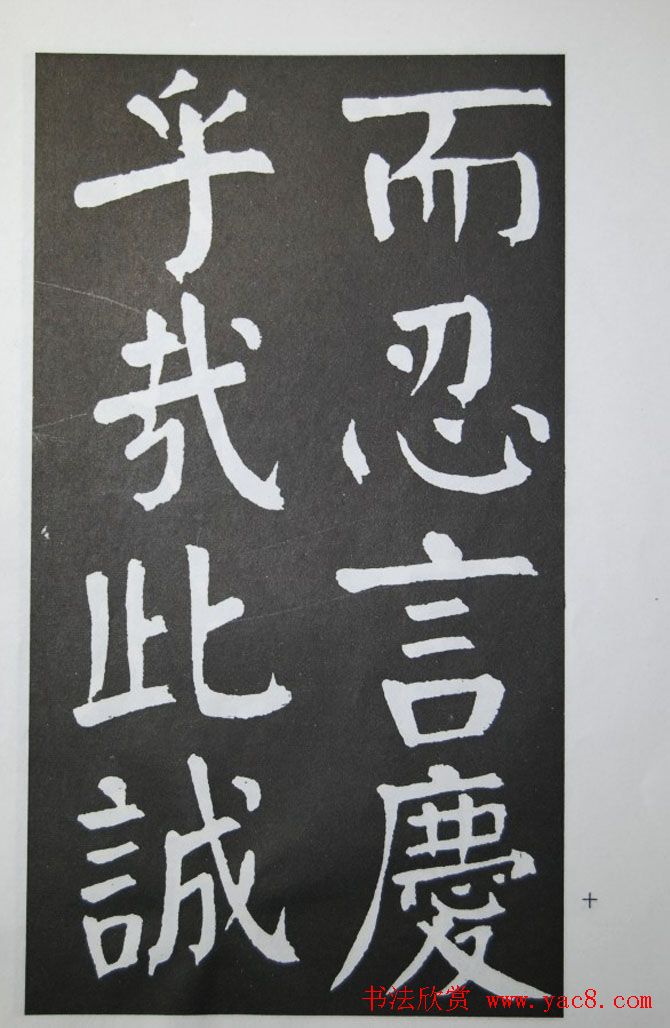 而忍言慶
乎哉此誠
书法欣赏 www.yac8.com